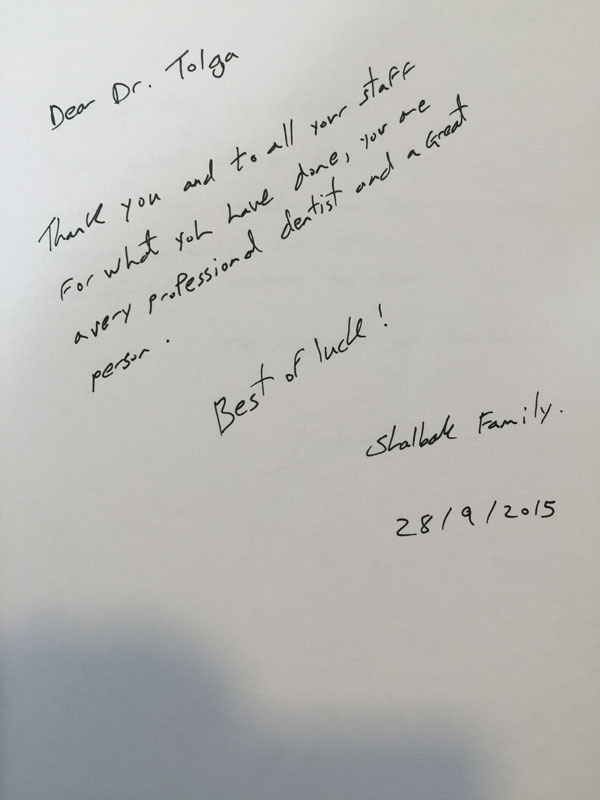 Dear Dr. Tolga
Thank you and to all your staff
For what you have done, you are
a very professional dentist and a Great
person.
Best of luck!
Shalbak Family.
28/9/2015